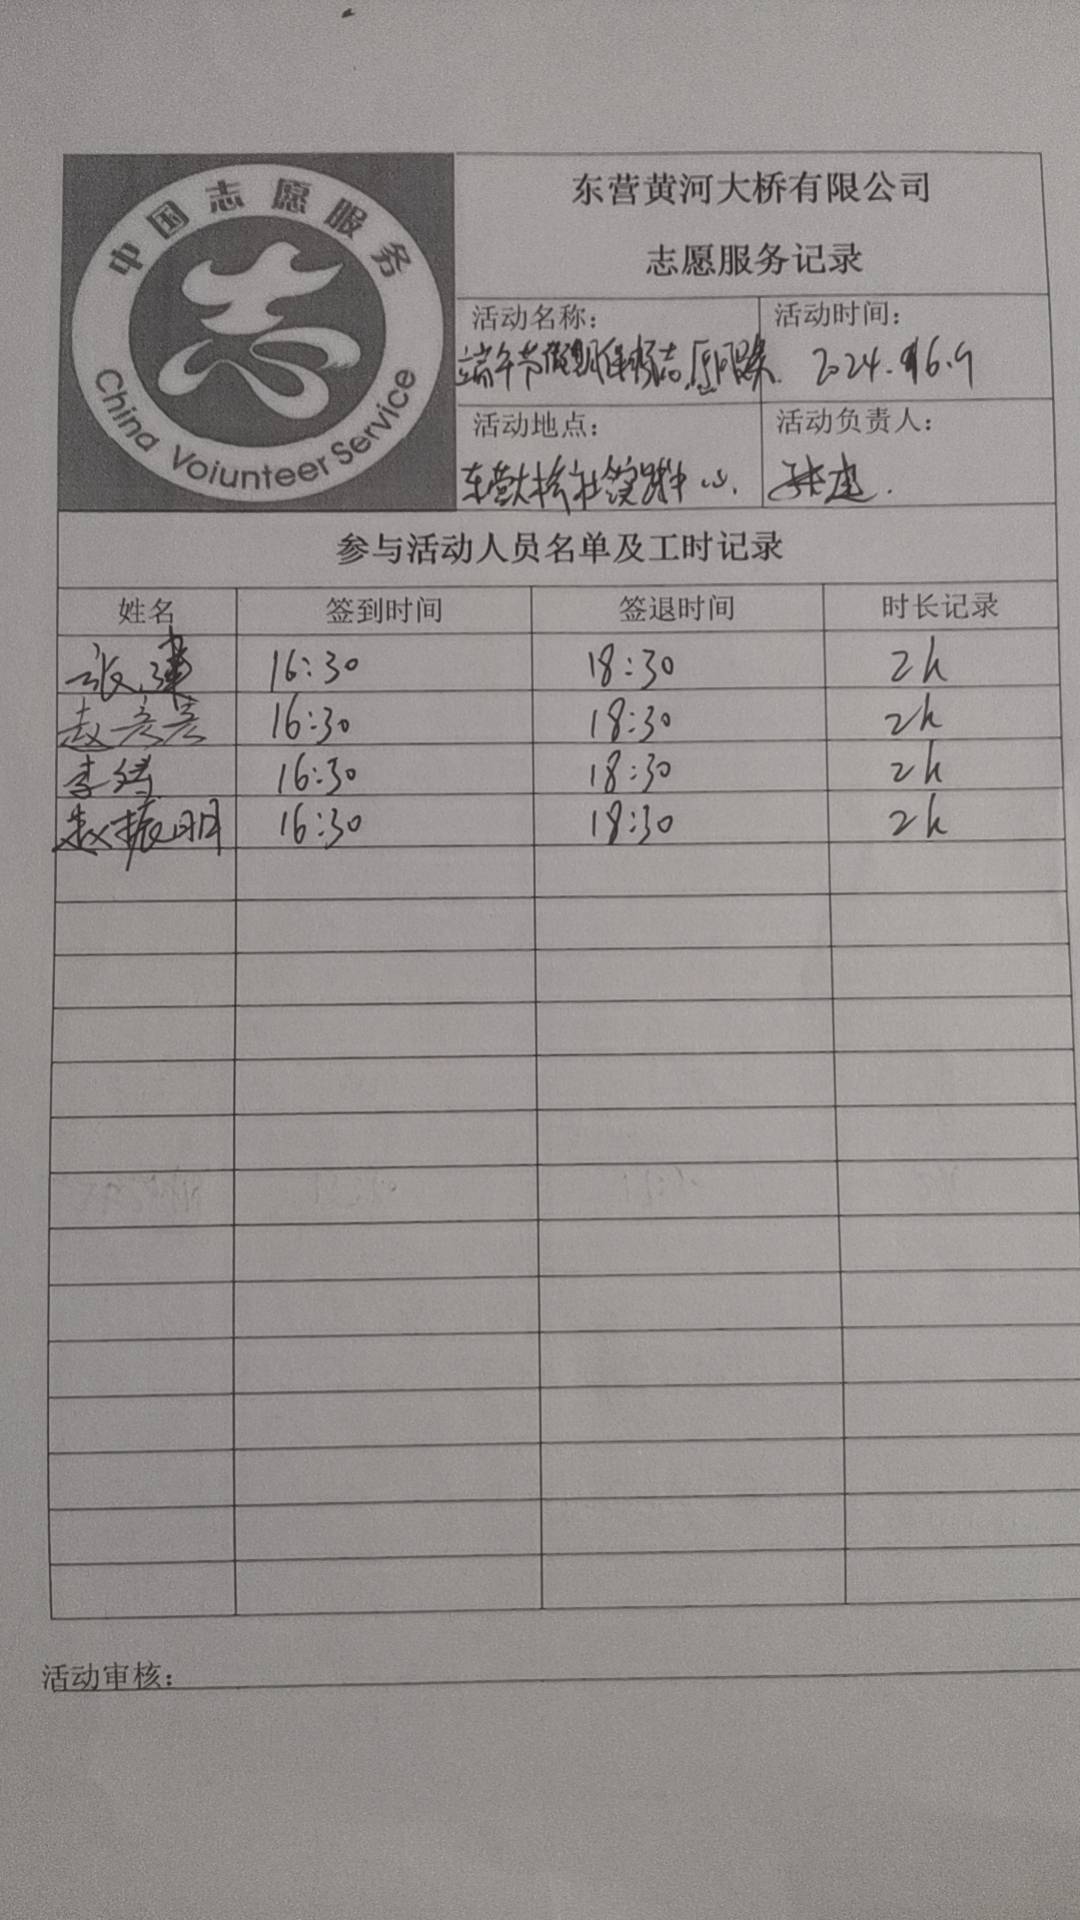 中国志愿服务
China Voiunteer Service
东营黄河大桥有限公司
志愿服务记录
活动名称：
端午节假期保畅志愿服务.
活动时间：
2024.6.9
活动地点：
东营大桥社 中心.
活动负责人：
张建.
参与活动人员名单及工时记录
姓名 签到时间 签退时间 时长记录
张建 16:30 18:30 2h
赵彦彦 16:30 18:30 2h
李 16:30 18:30 2h
赵振明 16:30 18:30 2h
活动审核：